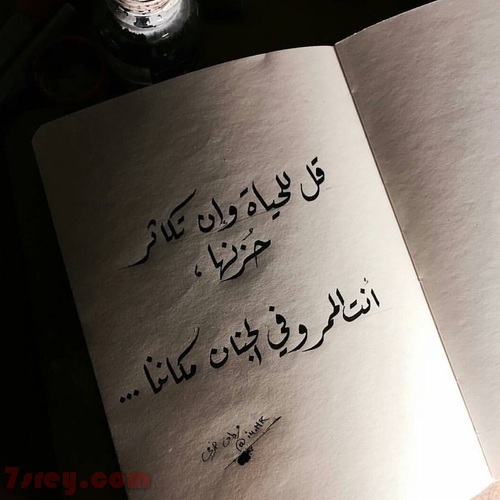 قل للحياة وإن تكاثر
حُزنها ،
أنت الممر وفي الجنان مكاننا ...
7srey.com